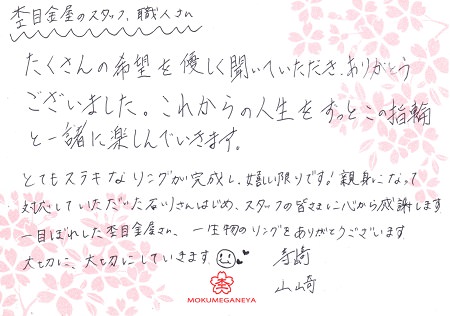 杢目金屋のスタッフ、職人さん
たくさんの希望を優しく聞いていただき、ありがとう
ございました。これからの人生をずっとこの指輪
と一緒に楽しんでいきます。
とてもステキなリングが完成し、嬉しい限りです!親身になって
対応していただいた石川さんはじめ、スタッフの皆さまに心から感謝します
一目ぼれした杢目金屋さん、一生物のリングをありがとうございます
大切に、大切にしていきます
寺崎
山崎
MOKUMEGANEYA